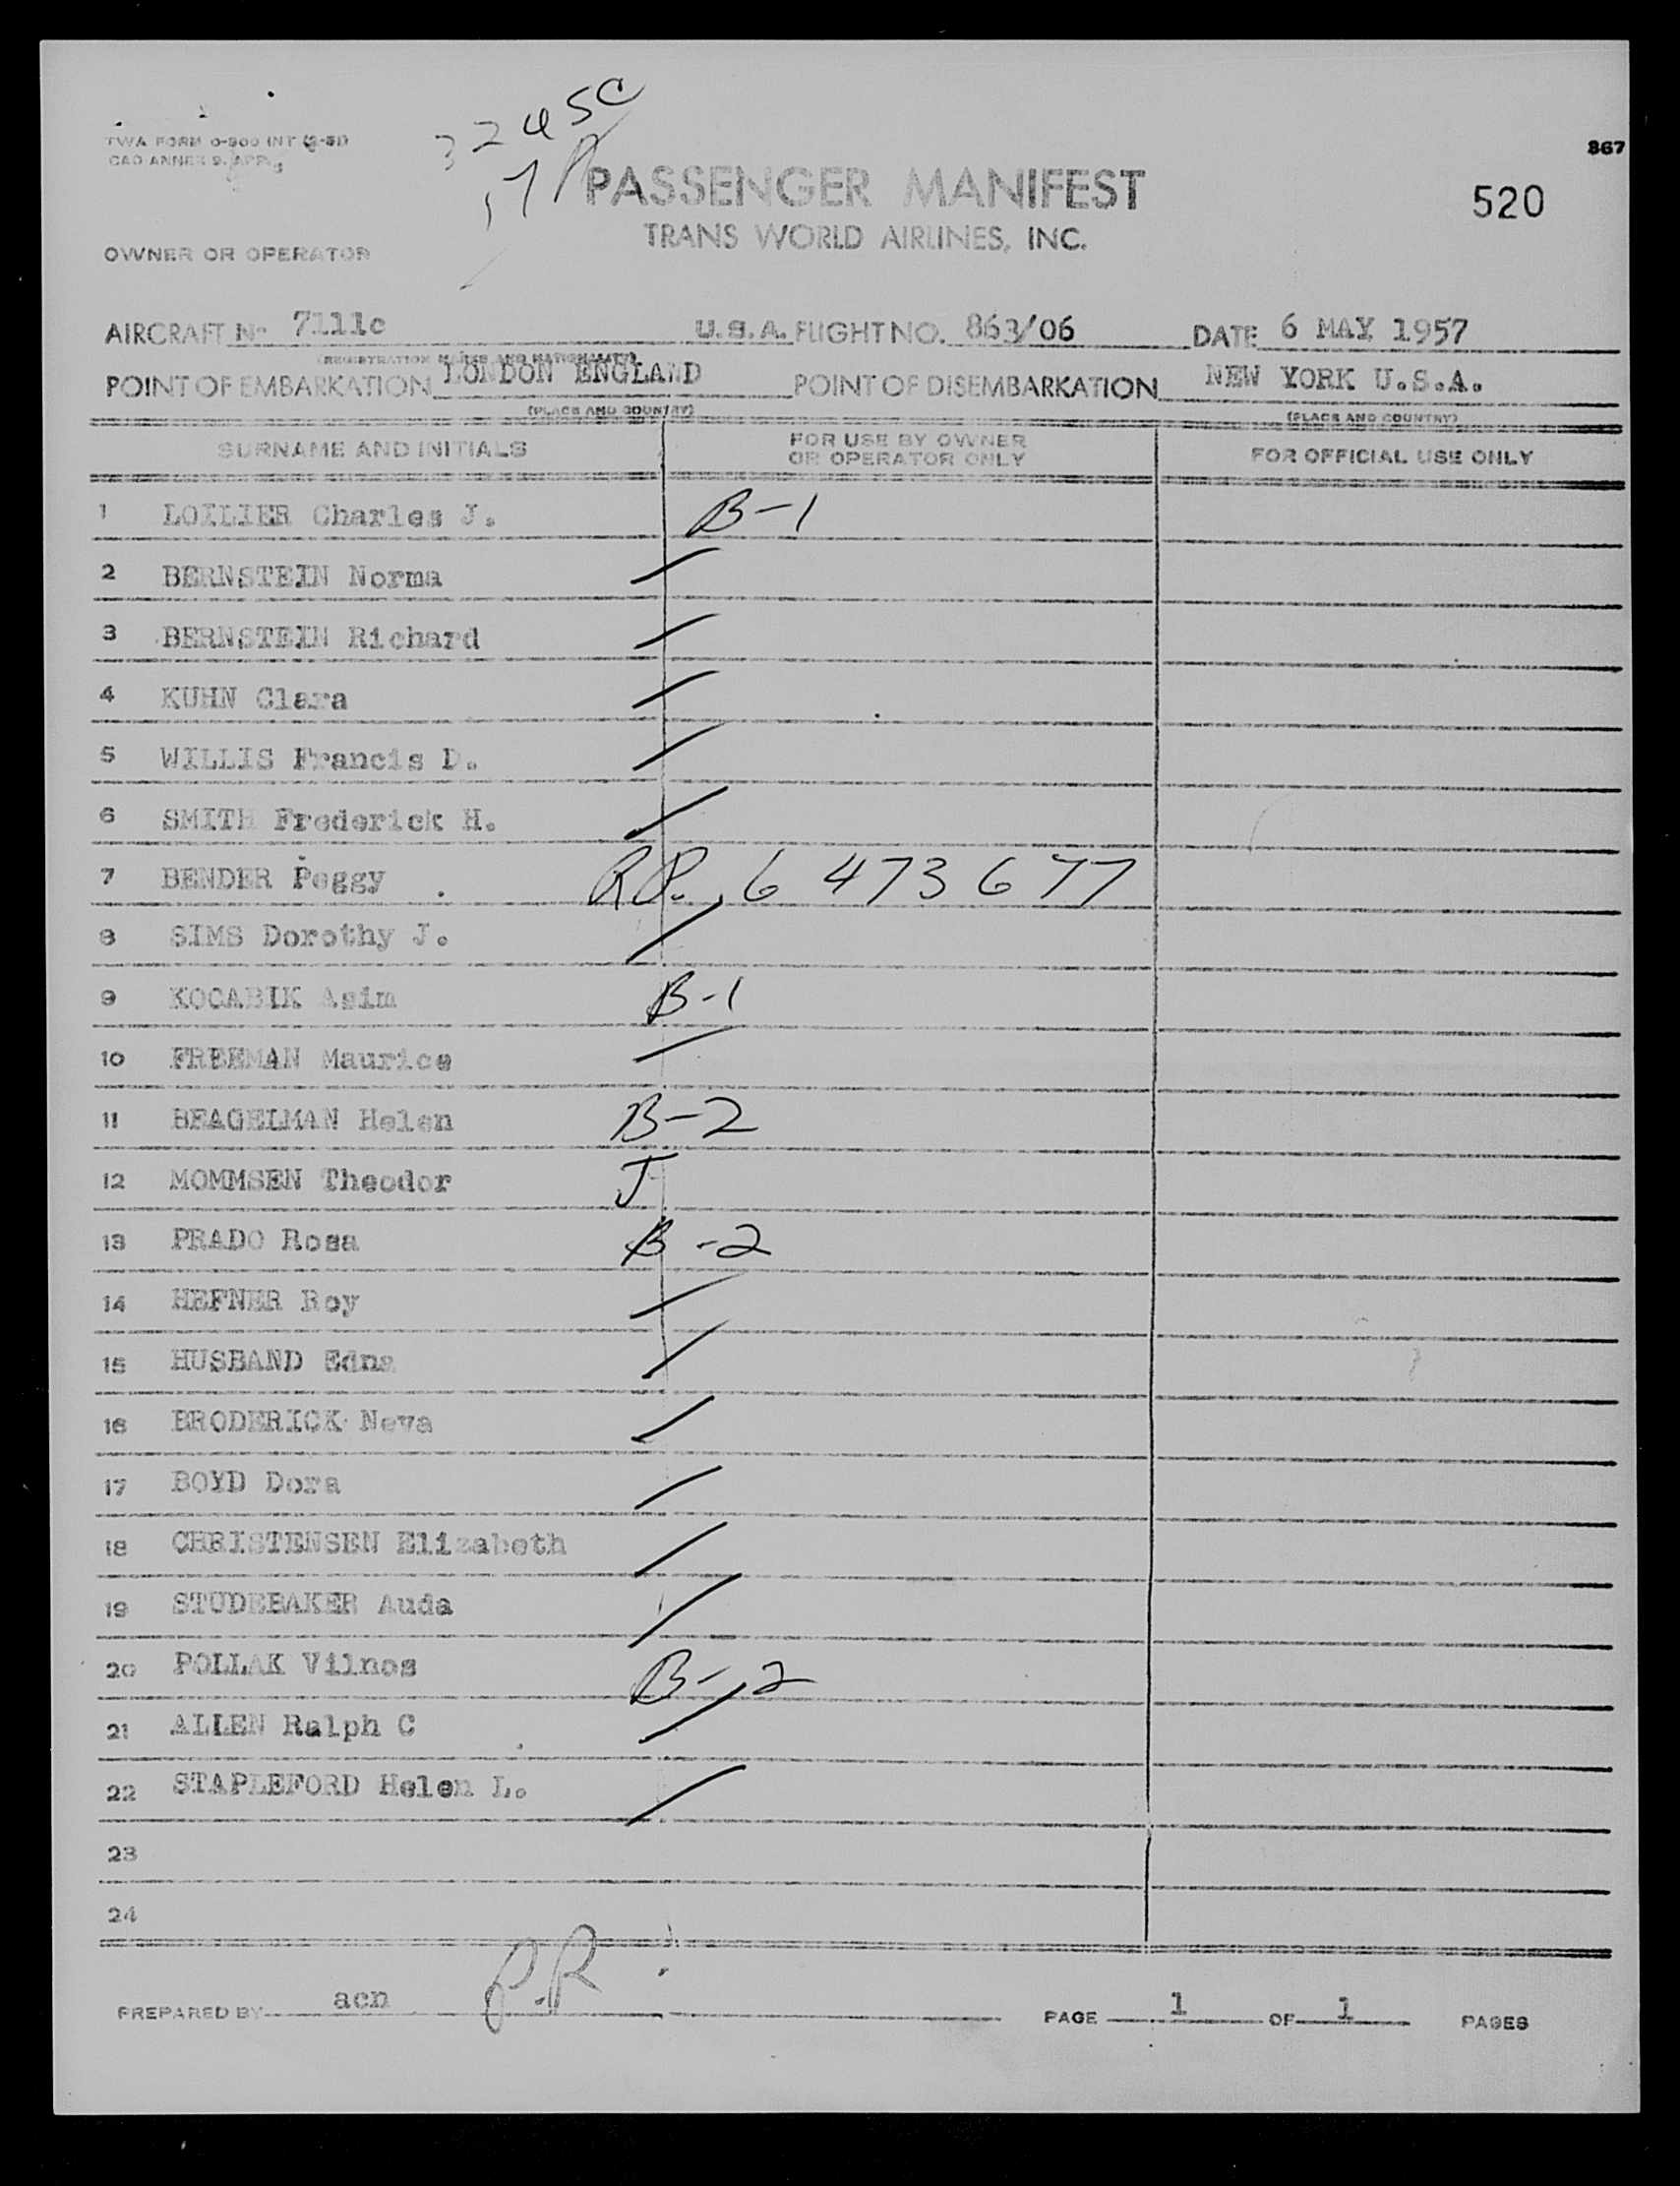 867
TWA FORM 0-900 INT
PASSENGER MANIFEST
520
TRANS WORLD AIRLINES, INC.
OWNER OR OPERATOR
AIRCRAFT No 7111c U.S.A. FLIGHT NO. 863/06 DATE 6 MAY 1957
(REGISTRATION MARKS AND NATIONALITY)
POINT OF EMBARKATION LONDON ENGLAND POINT OF DISEMBARKATION NEW YORK U.S.A.
(PLACE AND COUNTRY) (PLACE AND COUNTRY)
SURNAME AND INITIALS FOR USE BY OWNER OR OPERATOR ONLY FOR OFFICIAL USE ONLY
1 LOILIER Charles J. B-1
2 BERNSTEIN Norma
3 BERNSTEIN Richard
4 KUHN Clara
5 WILLIS Francis D.
6 SMITH Frederick H.
7 BENDER Peggy R.P. 6 473 677
8 SIMS Dorothy J.
9 KOCABIK Asim B-1
10 FREEMAN Maurice
11 BEAGELMAN Helen B-2
12 MOMMSEN Theodor J
13 PRADO Rosa B-2
14 HEFNER Roy
15 HUSBAND Edna
16 BRODERICK Neva
17 BOYD Dora
18 CHRISTENSEN Elizabeth
19 STUDEBAKER Auda
20 POLLAK Vilnos B-2
21 ALLEN Ralph C
22 STAPLEFORD Helen L.
23
24
PREPARED BY acn P.R PAGE 1 OF 1 PAGES